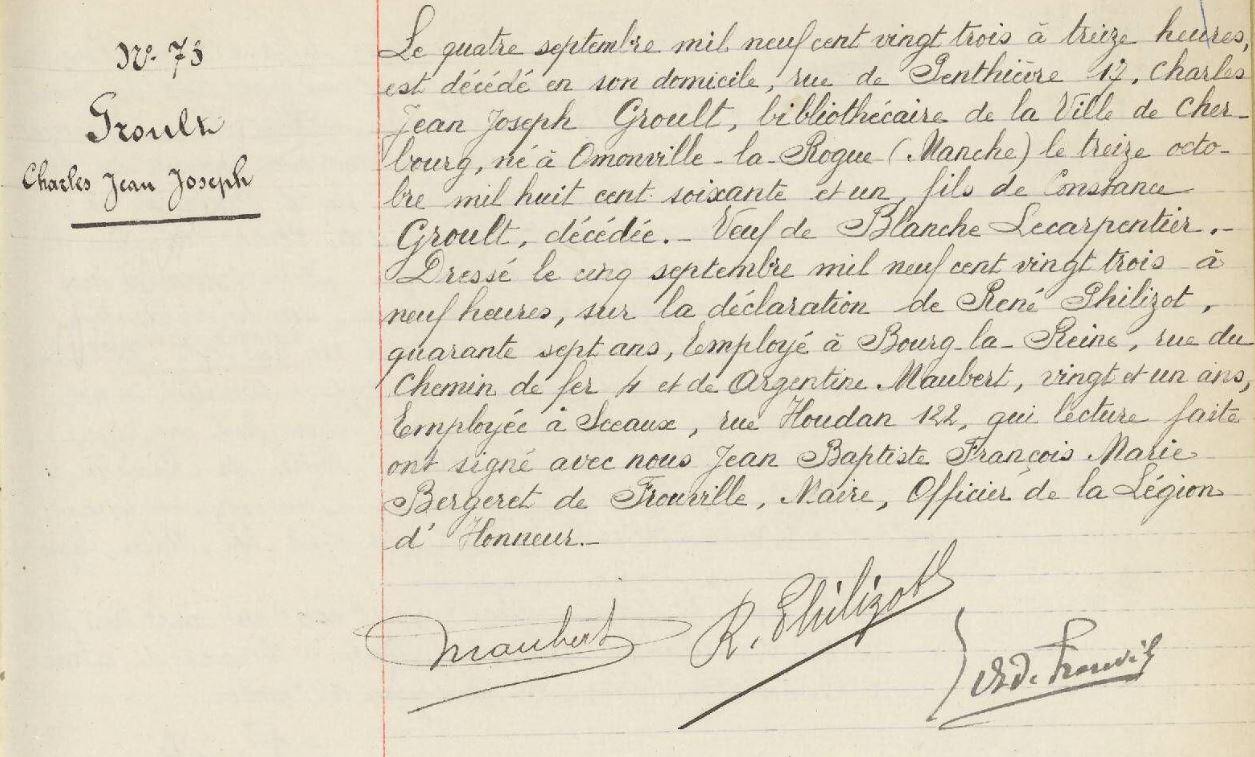 N° 78
Groult
Charles Jean Joseph
Le quatre septembre mil neuf cent vingt trois à treize heures,
est décédé en son domicile, rue de Penthièvre 12, Charles
Jean Joseph Groult, bibliothécaire de la Ville de Cher-
bourg, né à Omonville-la-Rogue (Manche) le treize octo-
bre mil huit cent soixante et un, fils de Constance
Groult, décédée.- Veuf de Blanche Lecarpentier.-
Dressé le cinq septembre mil neuf cent vingt trois à
neuf heures, sur la déclaration de René Philizot,
quarante sept ans, Employé à Bourg-la-Reine, rue du
Chemin de fer 4 et de Argentine Maubert, vingt et un ans,
Employée à Sceaux, rue Houdan 122, qui lecture faite
ont signé avec nous Jean Baptiste François Marie
Bergeret de Frouville, Maire, Officier de la Légion
d'Honneur.-
Maubert R. Philizot